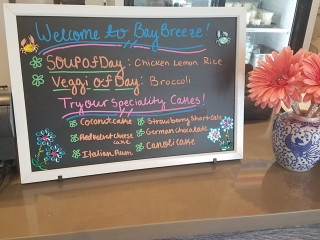 Welcome to BayBreeze!
Soup of Day: Chicken Lemon Rice
Veggi of Day: Broccoli
Try our Speciality Cakes!
Coconut cake
Strawberry Shortcake
Red velvet cheese cake
German Chocolate
Italian Rum
Canoli cake